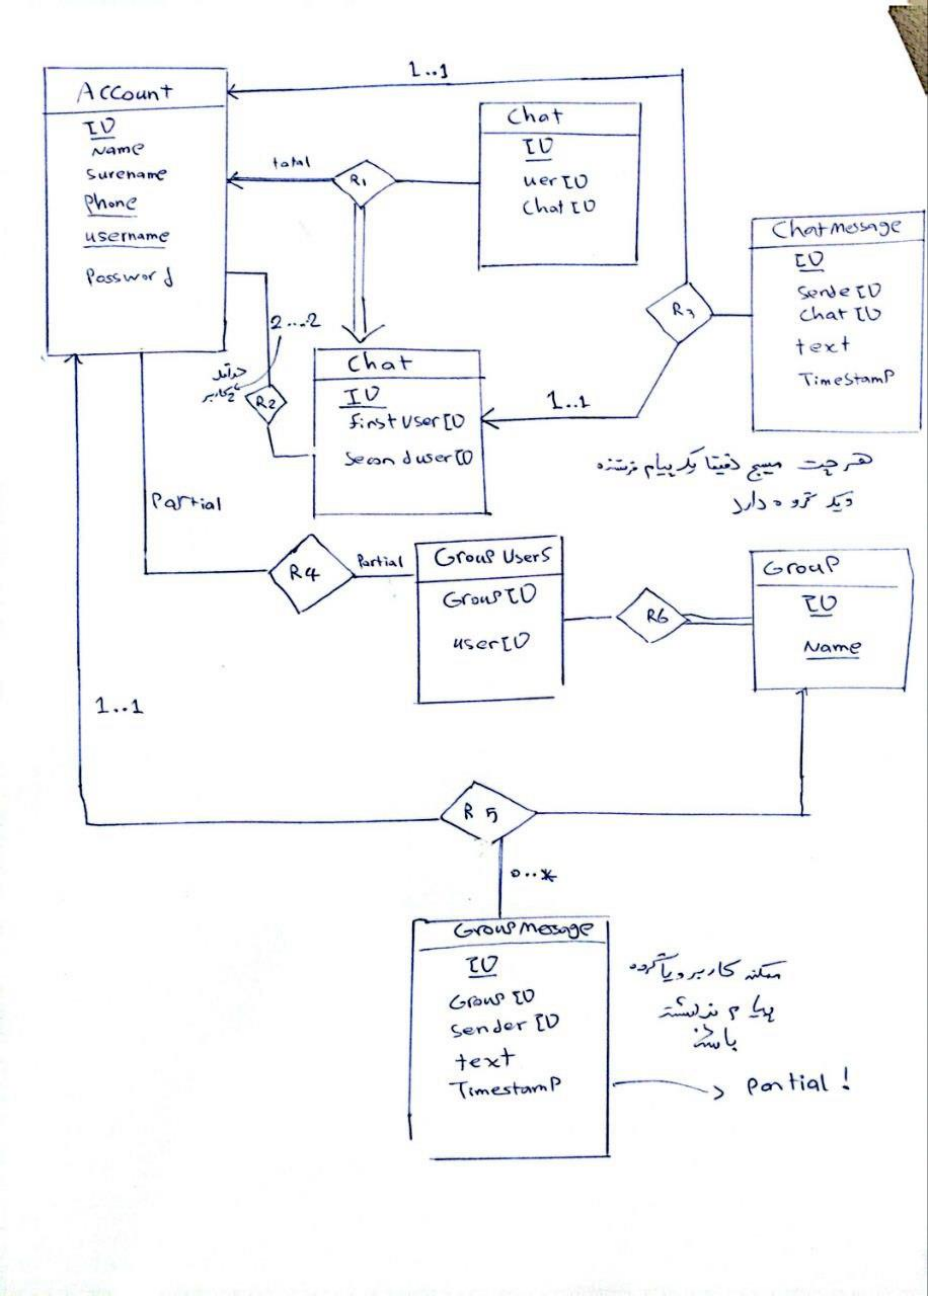 1..1
Account
ID
Name
Surename
Phone
username
Password
total
R1
Chat
ID
uerID
ChatID
ChatMessage
ID
SendeID
ChatID
text
TimeStamp
R3
2....2
2کاربر
R2
Chat
ID
firstUserID
SeconduserID
1..1
هر چت مسیج دقیقا یک پیام فرستنده
ویک گروه دارد
Partial
R4
Partial
Group Users
GroupID
userID
R6
Group
ID
Name
1..1
R5
0..*
GroupMessage
ID
GroupID
Sender ID
text
Timestamp
ممکنه کاربر و یا گروه
پیام نداشته
باشد
Partial !